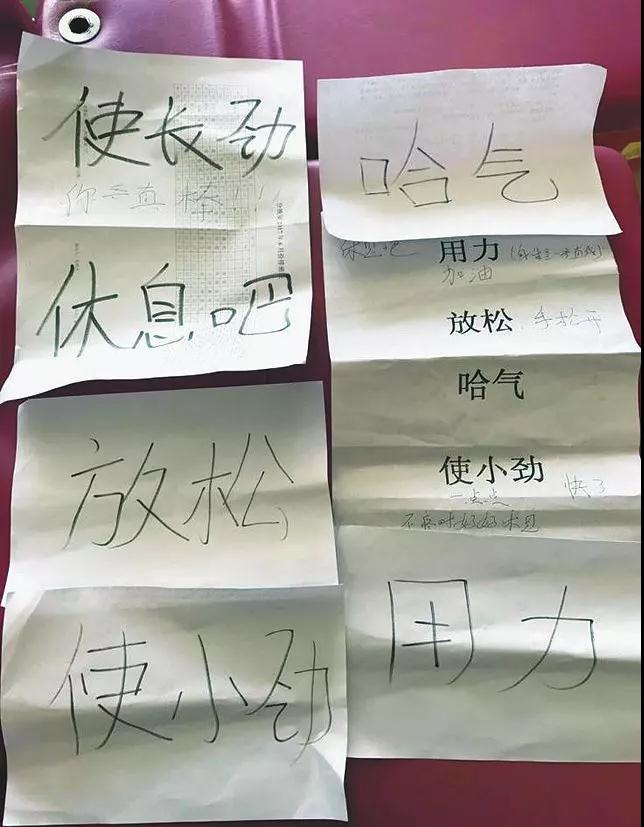 使长劲
你真棒!!
休息吧
放松
使小劲
哈气
休息吧 用力
加油
放松 手松开
哈气
使小劲
一点点 快了
不疼时好好休息
用力